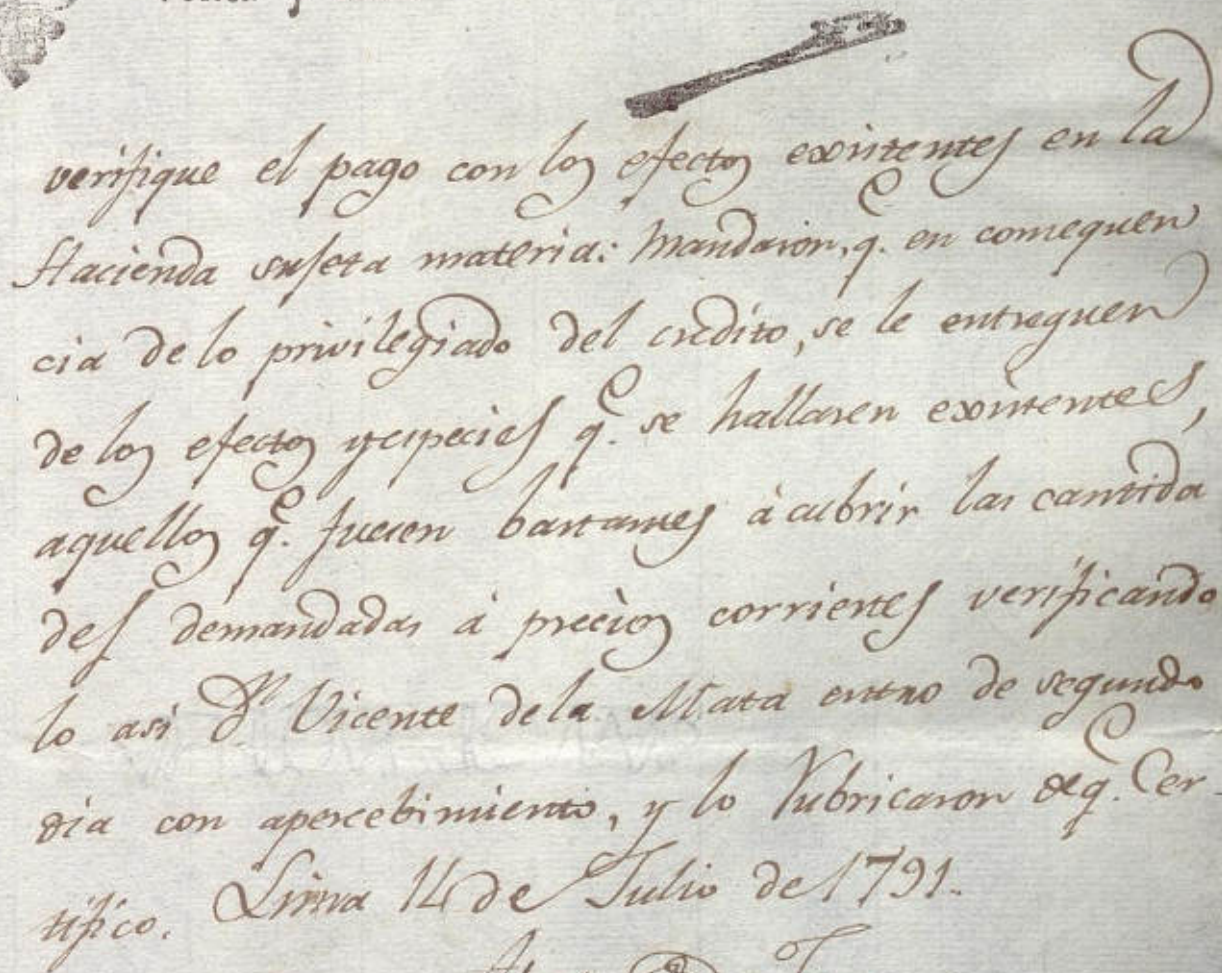 verifique el pago con los efectos existentes en la
Hacienda sujeta materia: Mandaron, q.e en consequen
cia de lo privilegiado del credito, se le entreguen
de los efectos y especies q.e se hallaren existentes,
aquellos q.e fueren bastantes à cubrir las cantida
des demandadas á precios corrientes verificando
lo asi D.n Vicente de la Mata entro de segundo
dia con apercebimiento, y lo Rubricaron de q.e Cer-
tifico. Lima 14 de Julio de 1791.